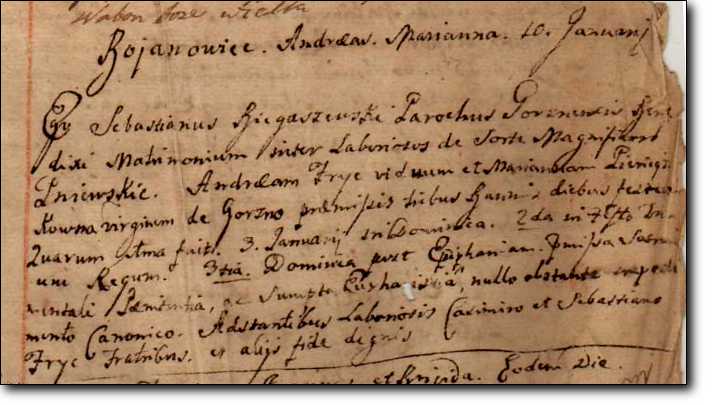 Wabon Boze wielka
Bojanowice. Andreas. Marianna. 10. Januarij
Ego Sebastianus Biegaszewski Parochus Gorznensis Bene
dixi Matrimonium inter Laboriosos de Sorte Magnificorum
Pniewskie. Andream Fryc viduum et Mariannam
kowna virginem de Gorzno præmissis tribus Bannis diebus festivis
Quarum 1ma fuit. 3. Januarij in Dominica. 2da in Festo
um Regum. 3tia. Dominica post Epiphaniam. præmissa Sacra
mentali Pænitentia, ac Sumpta Eucharistia, nullo obstante impedi
mento Canonico. Adstantibus Laboriosis Casimiro et Sebastiano
Fryc Fratribus. et alijs fide dignis
et Brigida. Eodem Die.